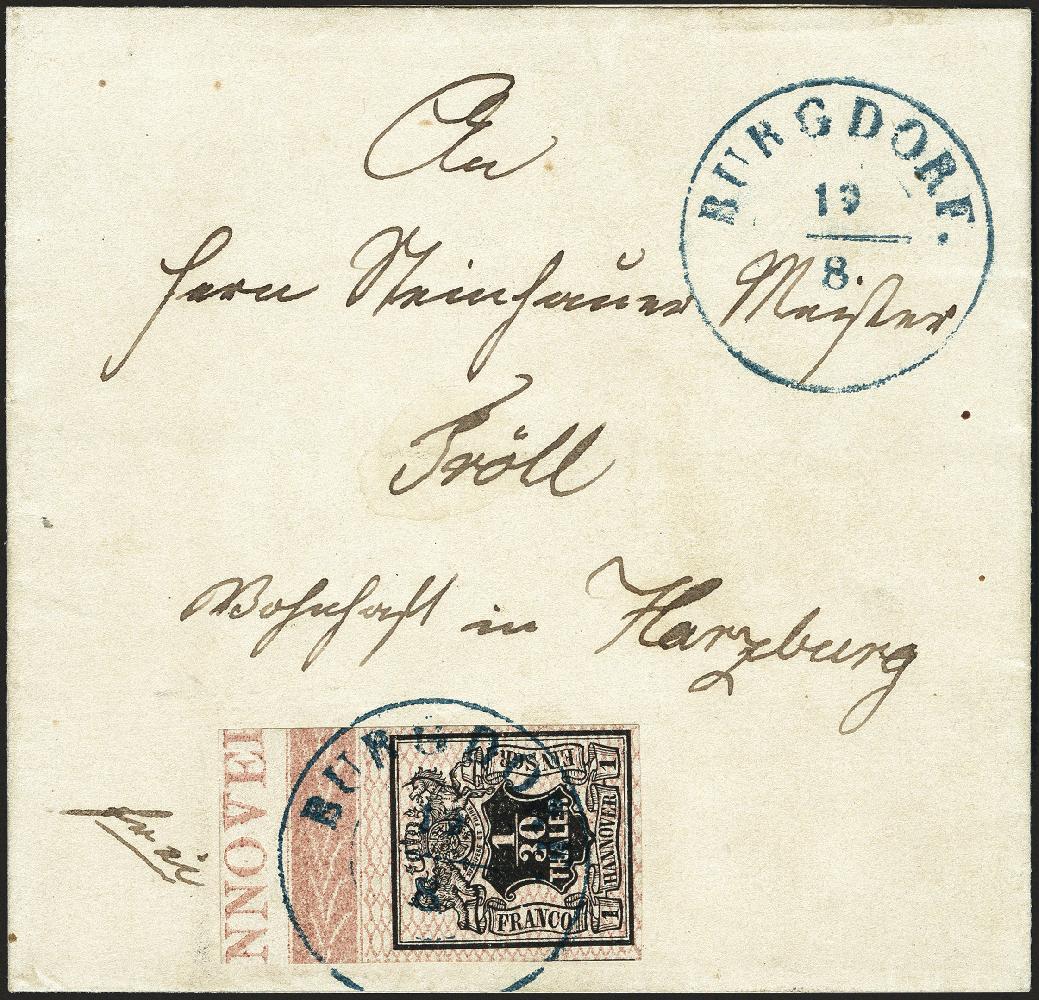 An
BURGDORF.
19
8
Herrn Steinhauer Meister
Tröll
Wohnhaft in Harzburg
frei
NNOVER
BURGDO
EIN SGR
1
HANNOVER
1
1
30
THALER
FRANCO